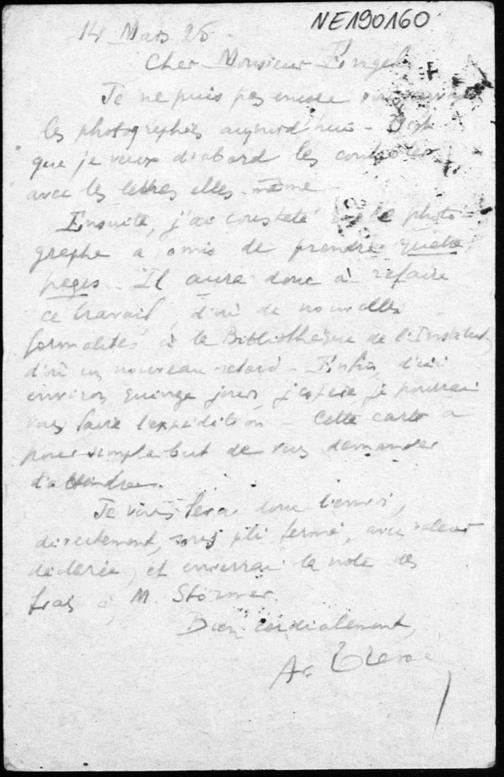 NE190160
14 Mars 25.
Cher Monsieur Engel,
Je ne puis pas encore vous envoyer
les photographies aujourd'hui - C'est
que je veux d'abord les contrôler
avec les lettres elles-même
Ensuite, j'ai constaté que le photo-
graphe a omis de prendre quelques
pages. Il aura donc à refaire
ce travail, d'où de nouvelles
formalités à la Bibliothèque de l'Institut,
d'où un nouveau retard - Enfin, d'ici
environ quinze jours, j'espère, je pourrai
vous faire l'expédition - Cette carte a
pour simple but de vous demander
d'attendre.
Je vous ferai donc l'envoi,
directement, sous pli fermé, avec valeur
déclarée, et enverrai la note des
frais à M. Störmer.
Bien cordialement,